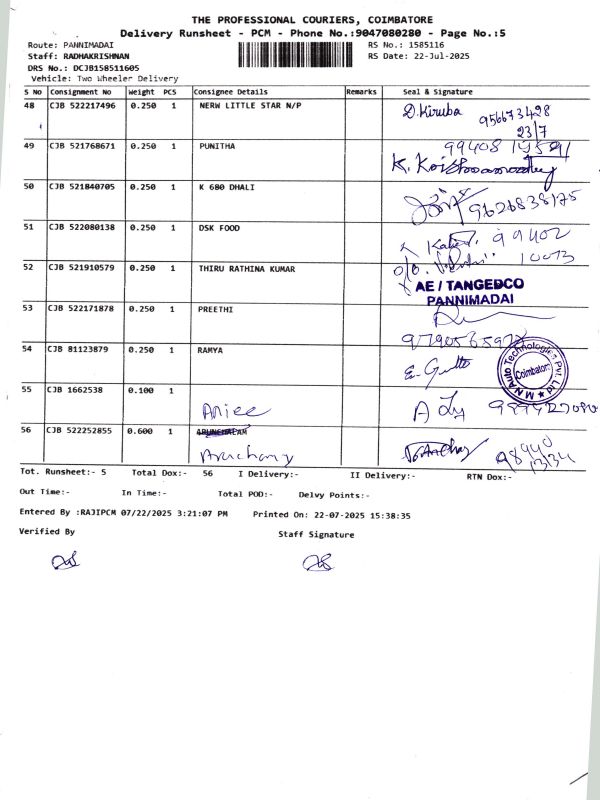 THE PROFESSIONAL COURIERS, COIMBATORE
Delivery Runsheet - PCM - Phone No.:9047080280 - Page No.:5
Route: PANNIMADAI RS No.: 1585116
Staff: RADHAKRISHNAN RS Date: 22-Jul-2025
DRS No.: DCJB158511605
Vehicle: Two Wheeler Delivery
S No Consignment No Weight PCS Consignee Details Remarks Seal & Signature
48 CJB 522217496 0.250 1 NERW LITTLE STAR N/P D.Kiruba
956673428
23/7
49 CJB 521768671 0.250 1 PUNITHA
50 CJB 521840705 0.250 1 K 680 DHALI 9626838175
51 CJB 522080138 0.250 1 DSK FOOD 99402
10073
52 CJB 521910579 0.250 1 THIRU RATHINA KUMAR AE / TANGEDCO
PANNIMADAI
53 CJB 522171878 0.250 1 PREETHI
54 CJB 81123879 0.250 1 RAMYA
M N Auto Technologies Pvt. Ltd
Coimbatore
55 CJB 1662538 0.100 1
56 CJB 522252855 0.600 1 ARUNCHALAM
98940
Tot. Runsheet:- 5 Total Dox:- 56 I Delivery:- II Delivery:- RTN Dox:-
Out Time:- In Time:- Total POD:- Delvy Points:-
Entered By :RAJIPCM 07/22/2025 3:21:07 PM Printed On: 22-07-2025 15:38:35
Verified By Staff Signature